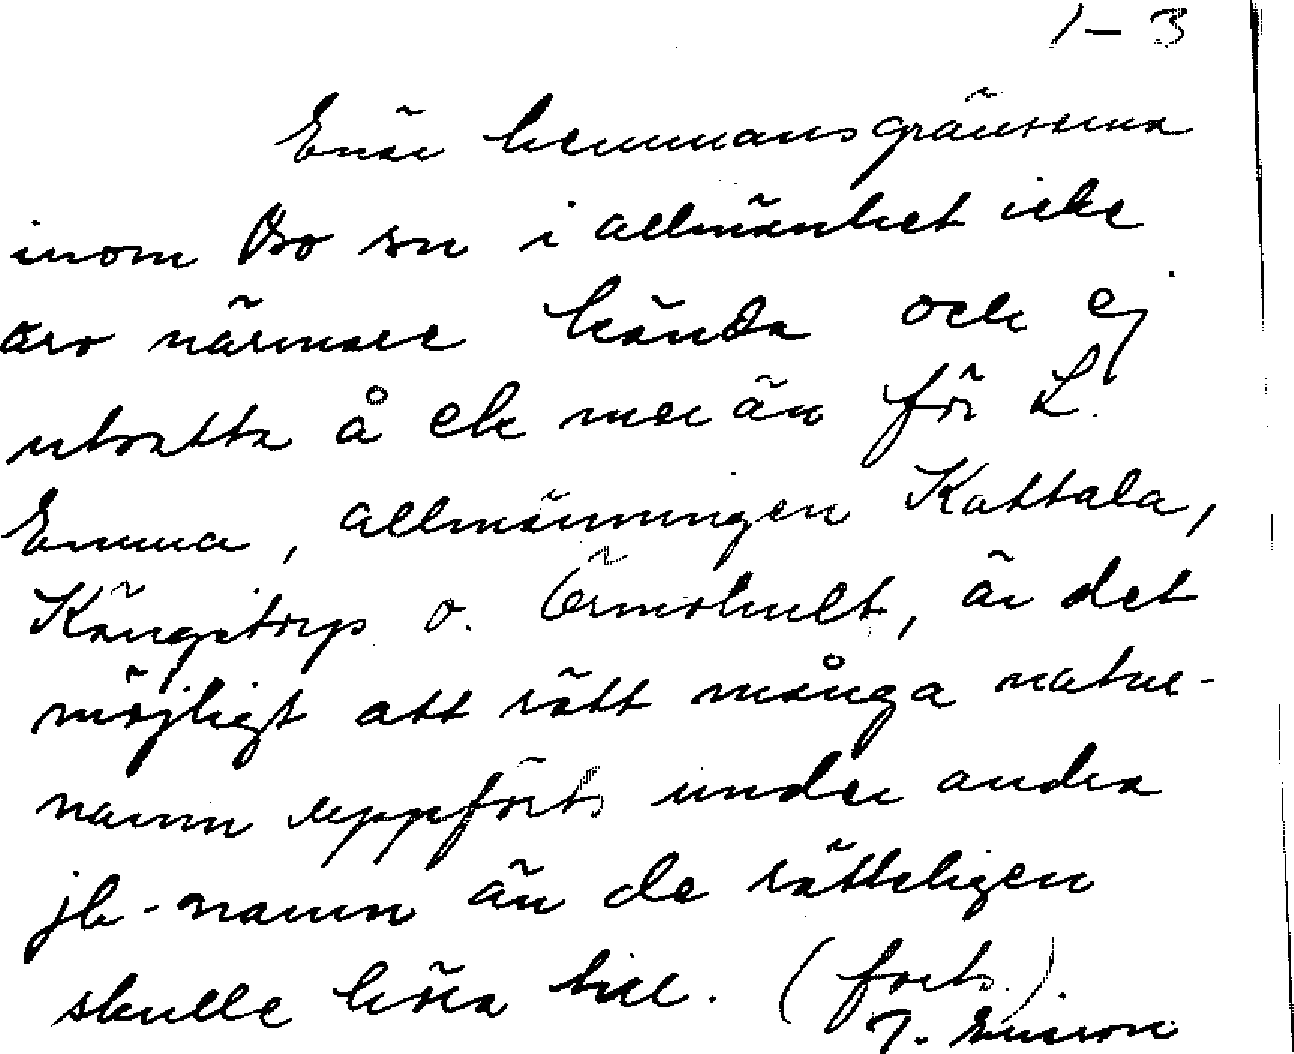 1-3
Enär hemmansgränserna
inom Bo sn i allmänhet icke
äro närmare kända och ej
utsatta å ek mer än för L.
Emma, allmänningen Kattala,
Kängstorp o. Örmshult, är det
möjligt att rätt många natur-
namn uppförts under andra
jb-namn än de rätteligen
skulle höra till. (forts.).
J.